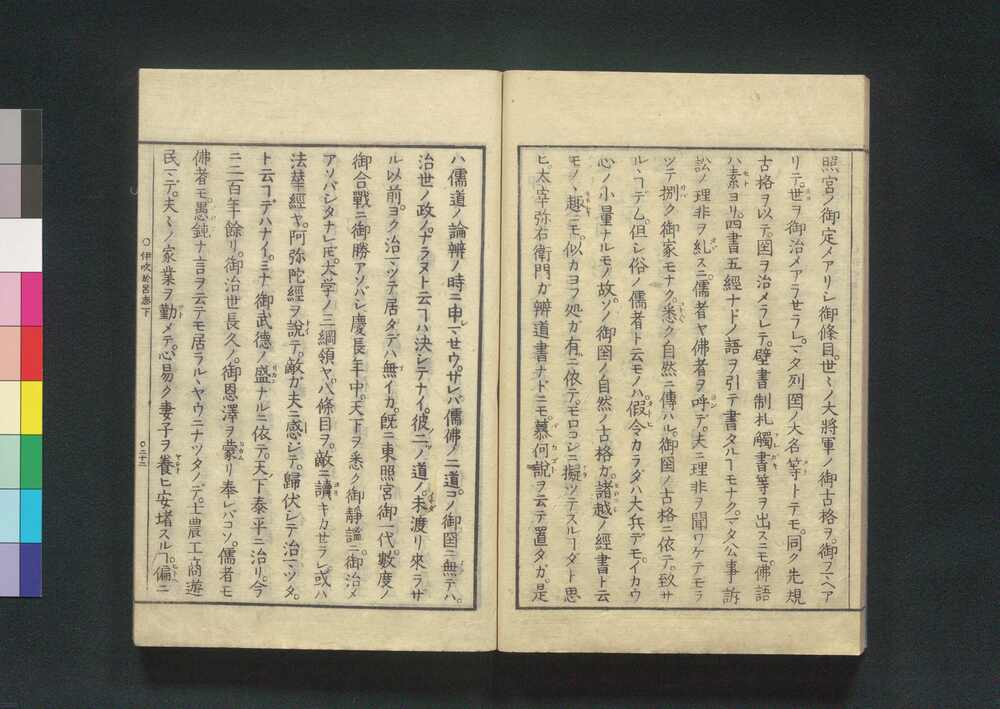 照宮ノ御定メアリシ御條目。世〻ノ大將軍ノ御古格ヲ。御フマヘア
リテ。世ヲ御治メアラセラレ。マタ列国ノ大名等トテモ。同ク先規
古格ヲ以テ。国ヲ治メラレテ。壁書制札觸書等ヲ出スニモ。佛語
ハ素ヨリ。四書五經ナドノ語ヲ引テ書タルヿモナク。マタ公事訴
訟ノ理非ヲ糺スニ。儒者ヤ佛者ヲ呼デ。夫ニ理非ヲ聞ワケテモラ
ツテ捌ク御家モナク。悉ク自然ニ傳ハル。御国ノ古格ニ依テ。致サ
ルヽヿデム。但シ俗ノ儒者ト云モノハ。假令カラダハ大兵デモ。イカウ
心ノ小量ナルモノ故。ソノ御国ノ自然ノ古格ガ。諸越ノ經書ト云
モノヽ趣ニモ。似カヨフ処ガ有ニ依テ。モロコシニ擬ツテスルヿダト思
ヒ。太宰弥右衛門ガ辨道書ナドニモ。慕何説ヲ云テ置タガ。是
ハ儒道ノ論辨ノ時ニ申マセウ。サレバ儒佛ノ二道。コノ御国ニ無テハ。
治世ノ政ノナラヌト云ヿハ決シテナイ。彼二ツノ道ノ。未渡リ來ラザ
ル以前。ヨク治マツテ居タデハ無イカ。既ニ東照宮御一代。數度ノ
御合戰ニ御勝アソバシ。慶長年中。天下ヲ悉ク御靜謐ニ。御治メ
アソバシタナレ𪜈。大学ノ三綱領ヤ。八條目ヲ。敵ニ讀キカセラレ。或ハ
法華經ヤ。阿弥陀經ヲ説テ。敵ガ夫ニ感シテ。歸伏シテ治マツタ。
ト云ヿデハナイ。ミナ御武德ノ盛ナルニ依テ。天下泰平ニ治リ。今
ニ二百年餘リ。御治世長久ノ。御恩澤ヲ蒙リ奉レバコソ。儒者モ
佛者モ。愚鈍ナ言ヲ云テモ居ラルヽヤウニナツタノデ。士農工商遊
民マデ。夫〻ノ家業ヲ勤メテ。心易ク妻子ヲ養ヒ安堵スルヿ。偏ニ
○伊吹於呂志下
○二十二